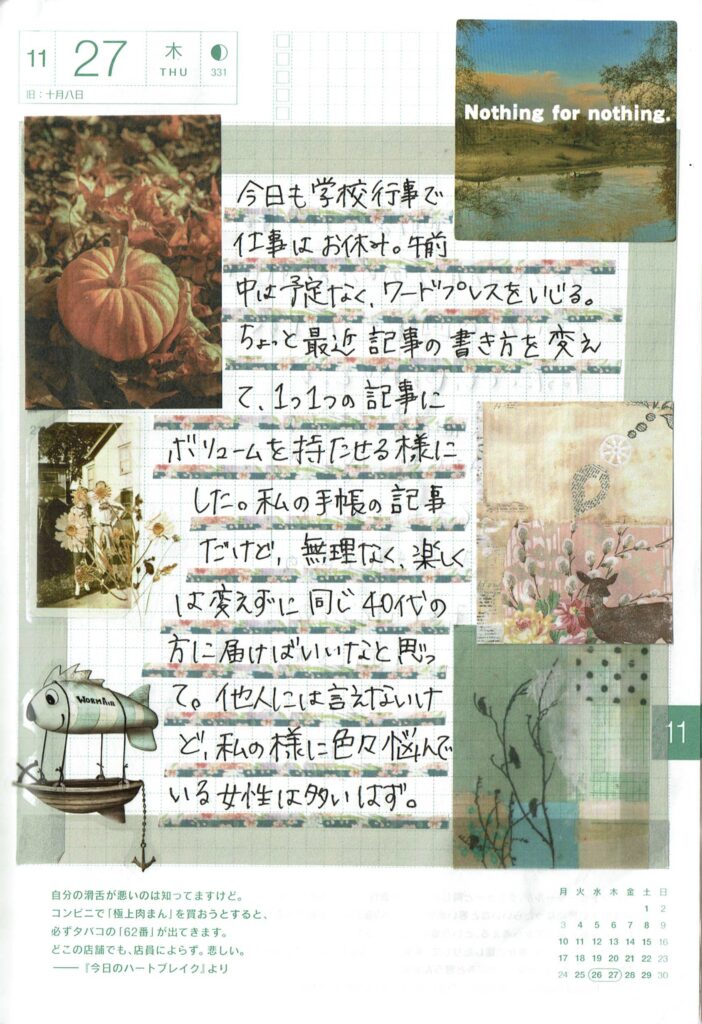 11
27
木
THU
331
旧：十月八日
Nothing for nothing.
今日も学校行事で
仕事はお休み。午前
中は予定なく、ワードプレスをいじる。
ちょっと最近記事の書き方を変え
て、1つ1つの記事に
ボリュームを持たせる様に
した。私の手帳の記事
だけど、無理なく、楽しく
は変えずに同じ40代の
方に届けばいいなと思っ
て。他人には言えないけ
ど、私の様に色々悩んで
いる女性は多いはず。
WORMAIR
11
自分の滑舌が悪いのは知ってますけど。
コンビニで「極上肉まん」を買おうとすると、
必ずタバコの「62番」が出てきます。
どこの店舗でも、店員によらず。悲しい。
——『今日のハートブレイク』より
月 火 水 木 金 土 日
1 2
3 4 5 6 7 8 9
10 11 12 13 14 15 16
17 18 19 20 21 22 23
24 25 26 27 28 29 30